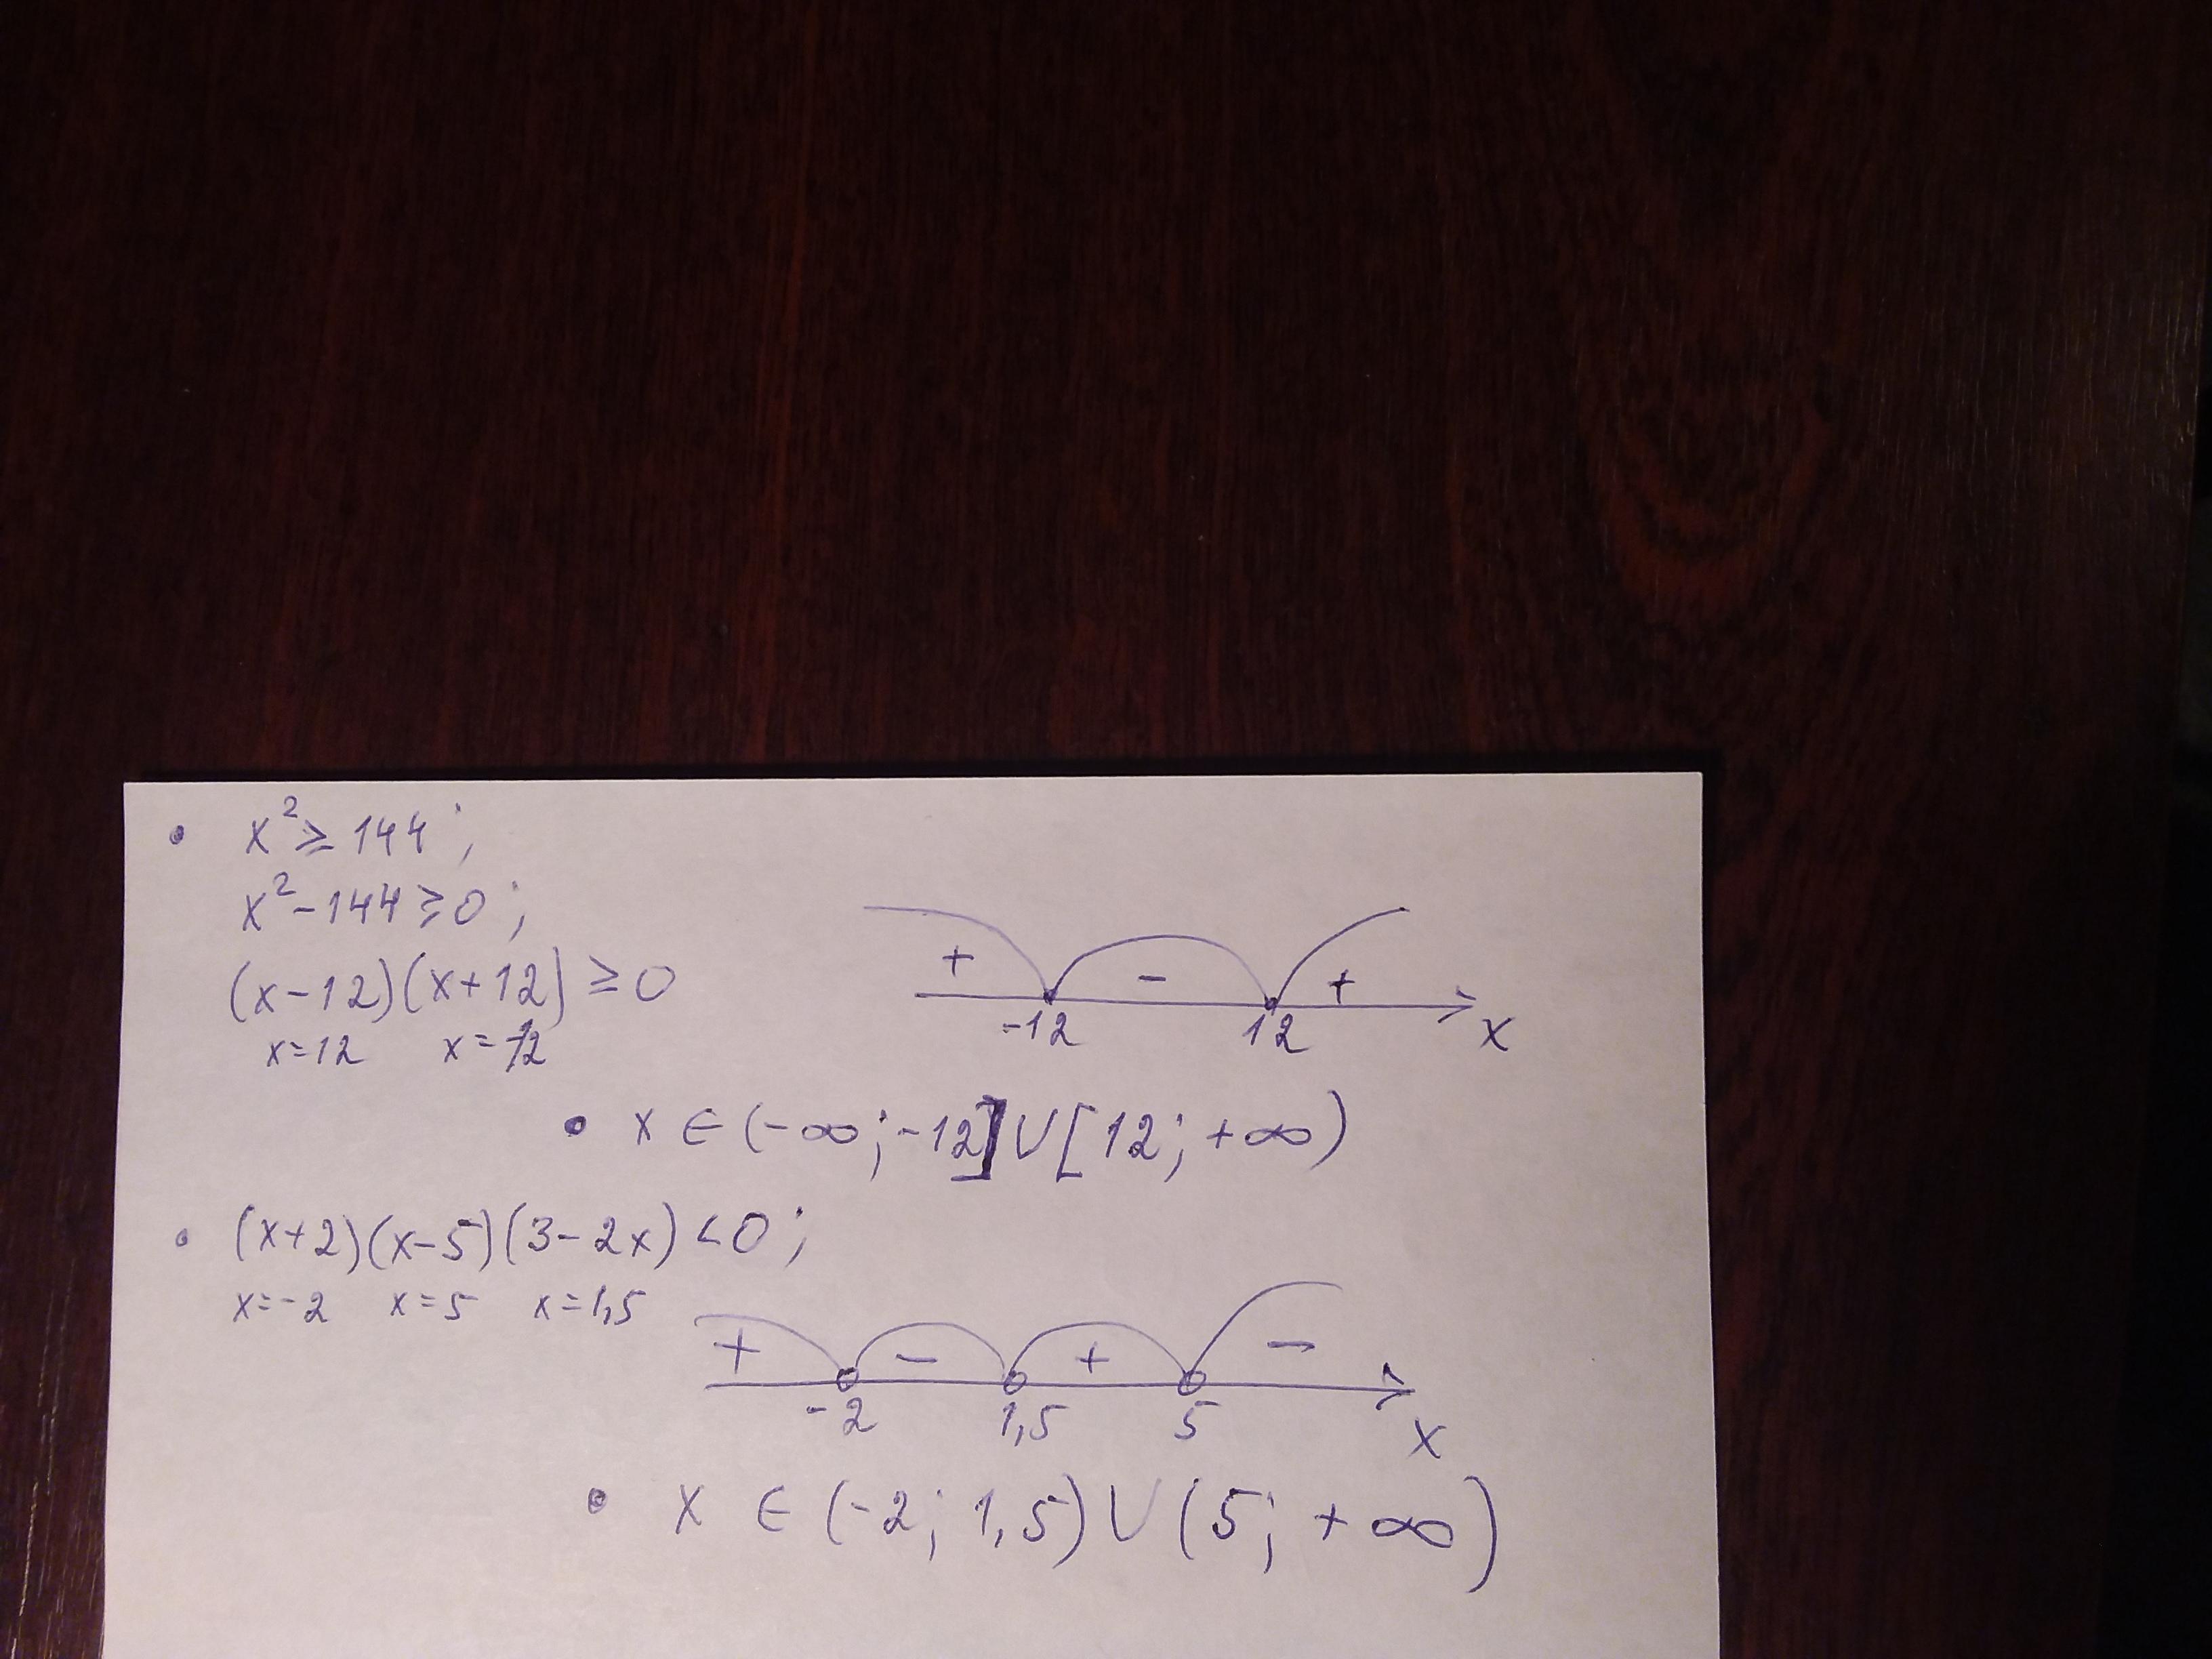 • x² ≥ 144;
x² - 144 ≥ 0;
(x-12)(x+12) ≥ 0
x=12 x=-12
+ - +
-12 12 x
• x ∈ (-∞; -12] ∪ [12; +∞)
• (x+2)(x-5)(3-2x) < 0;
x=-2 x=5 x=1,5
+ - + -
-2 1,5 5 x
• x ∈ (-2; 1,5) ∪ (5; +∞)